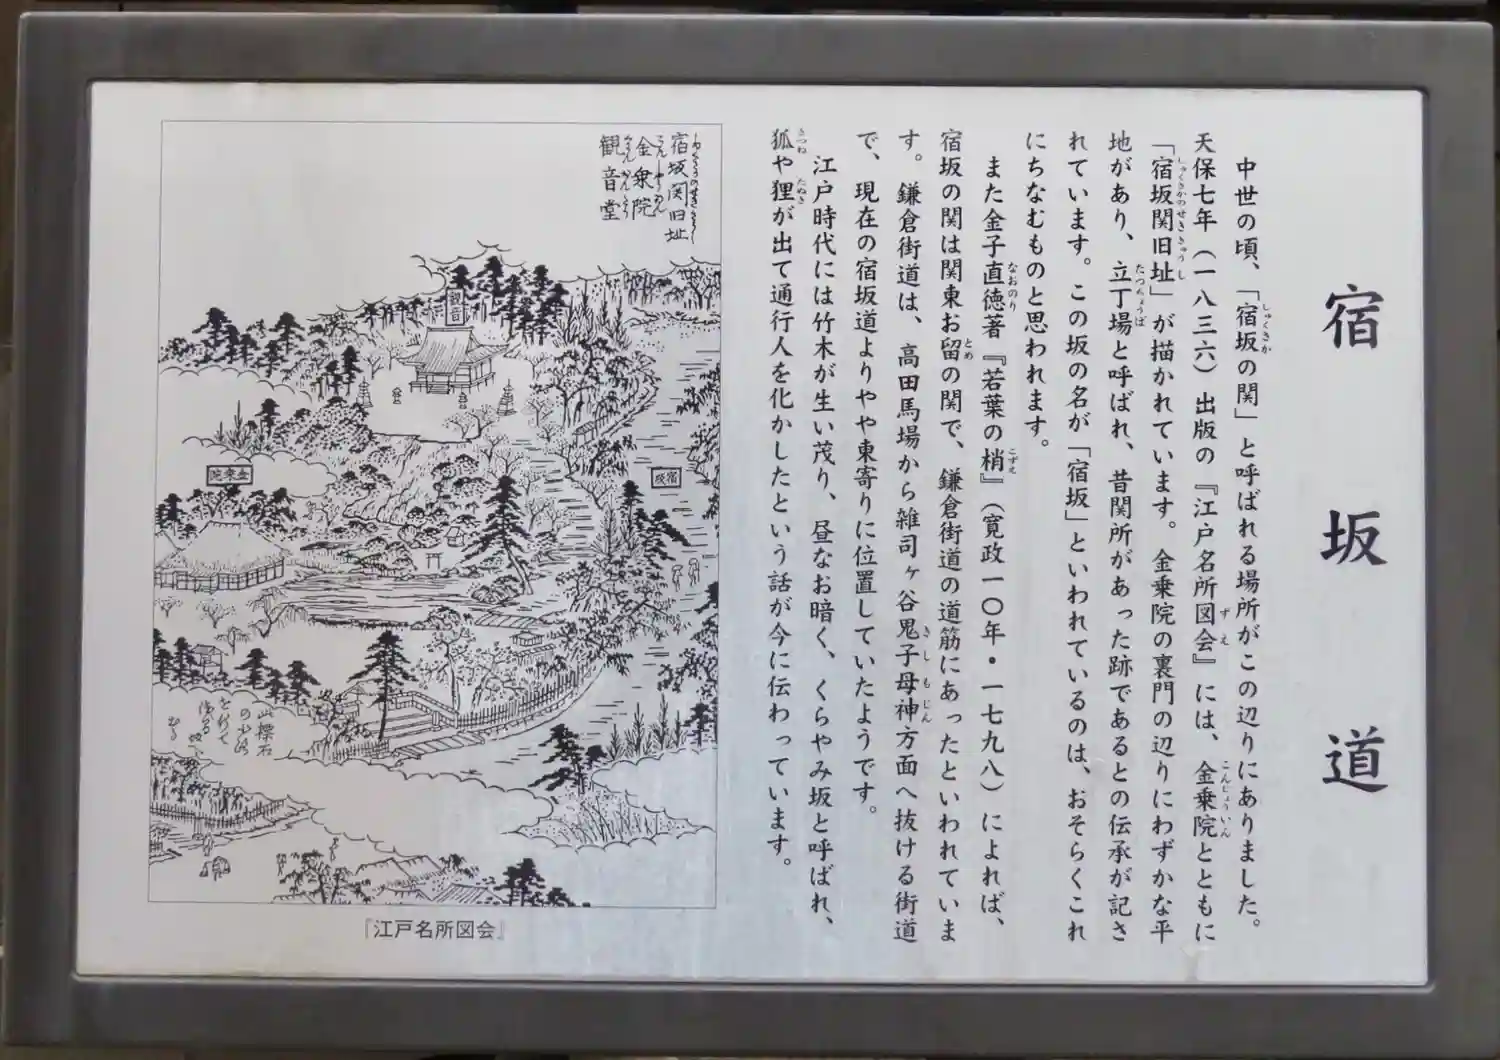 宿坂道
中世の頃、「宿坂の関」と呼ばれる場所がこの辺りにありました。
天保七年(一八三六)出版の『江戸名所図会』には、金乗院とともに
「宿坂関旧址」が描かれています。金乗院の裏門の辺りにわずかな平
地があり、立丁場と呼ばれ、昔関所があった跡であるとの伝承が記さ
れています。この坂の名が「宿坂」といわれているのは、おそらくこれ
にちなむものと思われます。
また金子直徳著『若葉の梢』(寛政一〇年・一七九八)によれば、
宿坂の関は関東お留の関で、鎌倉街道の道筋にあったといわれていま
す。鎌倉街道は、高田馬場から雑司ヶ谷鬼子母神方面へ抜ける街道
で、現在の宿坂道よりやや東寄りに位置していたようです。
江戸時代には竹木が生い茂り、昼なお暗く、くらやみ坂と呼ばれ、
狐や狸が出て通行人を化かしたという話が今に伝わっています。
宿坂関旧址
金衆院
観音堂
観音
宿坂
金乗院
『江戸名所図会』